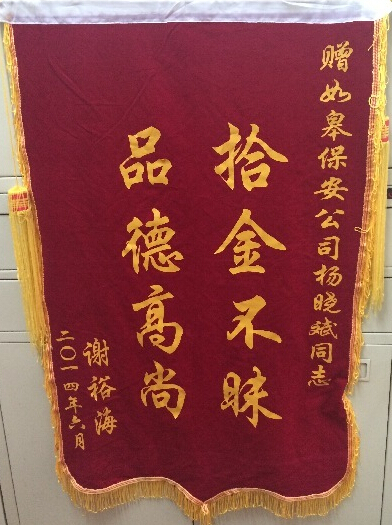 赠如皋保安公司杨晓斌同志
拾金不昧
品德高尚
谢裕海
二〇一四年六月